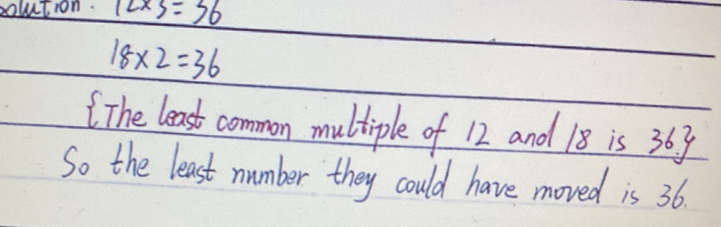 solution. 12x3=36
18x2=36
{The least common multiple of 12 and 18 is 36.}
So the least number they could have moved is 36.